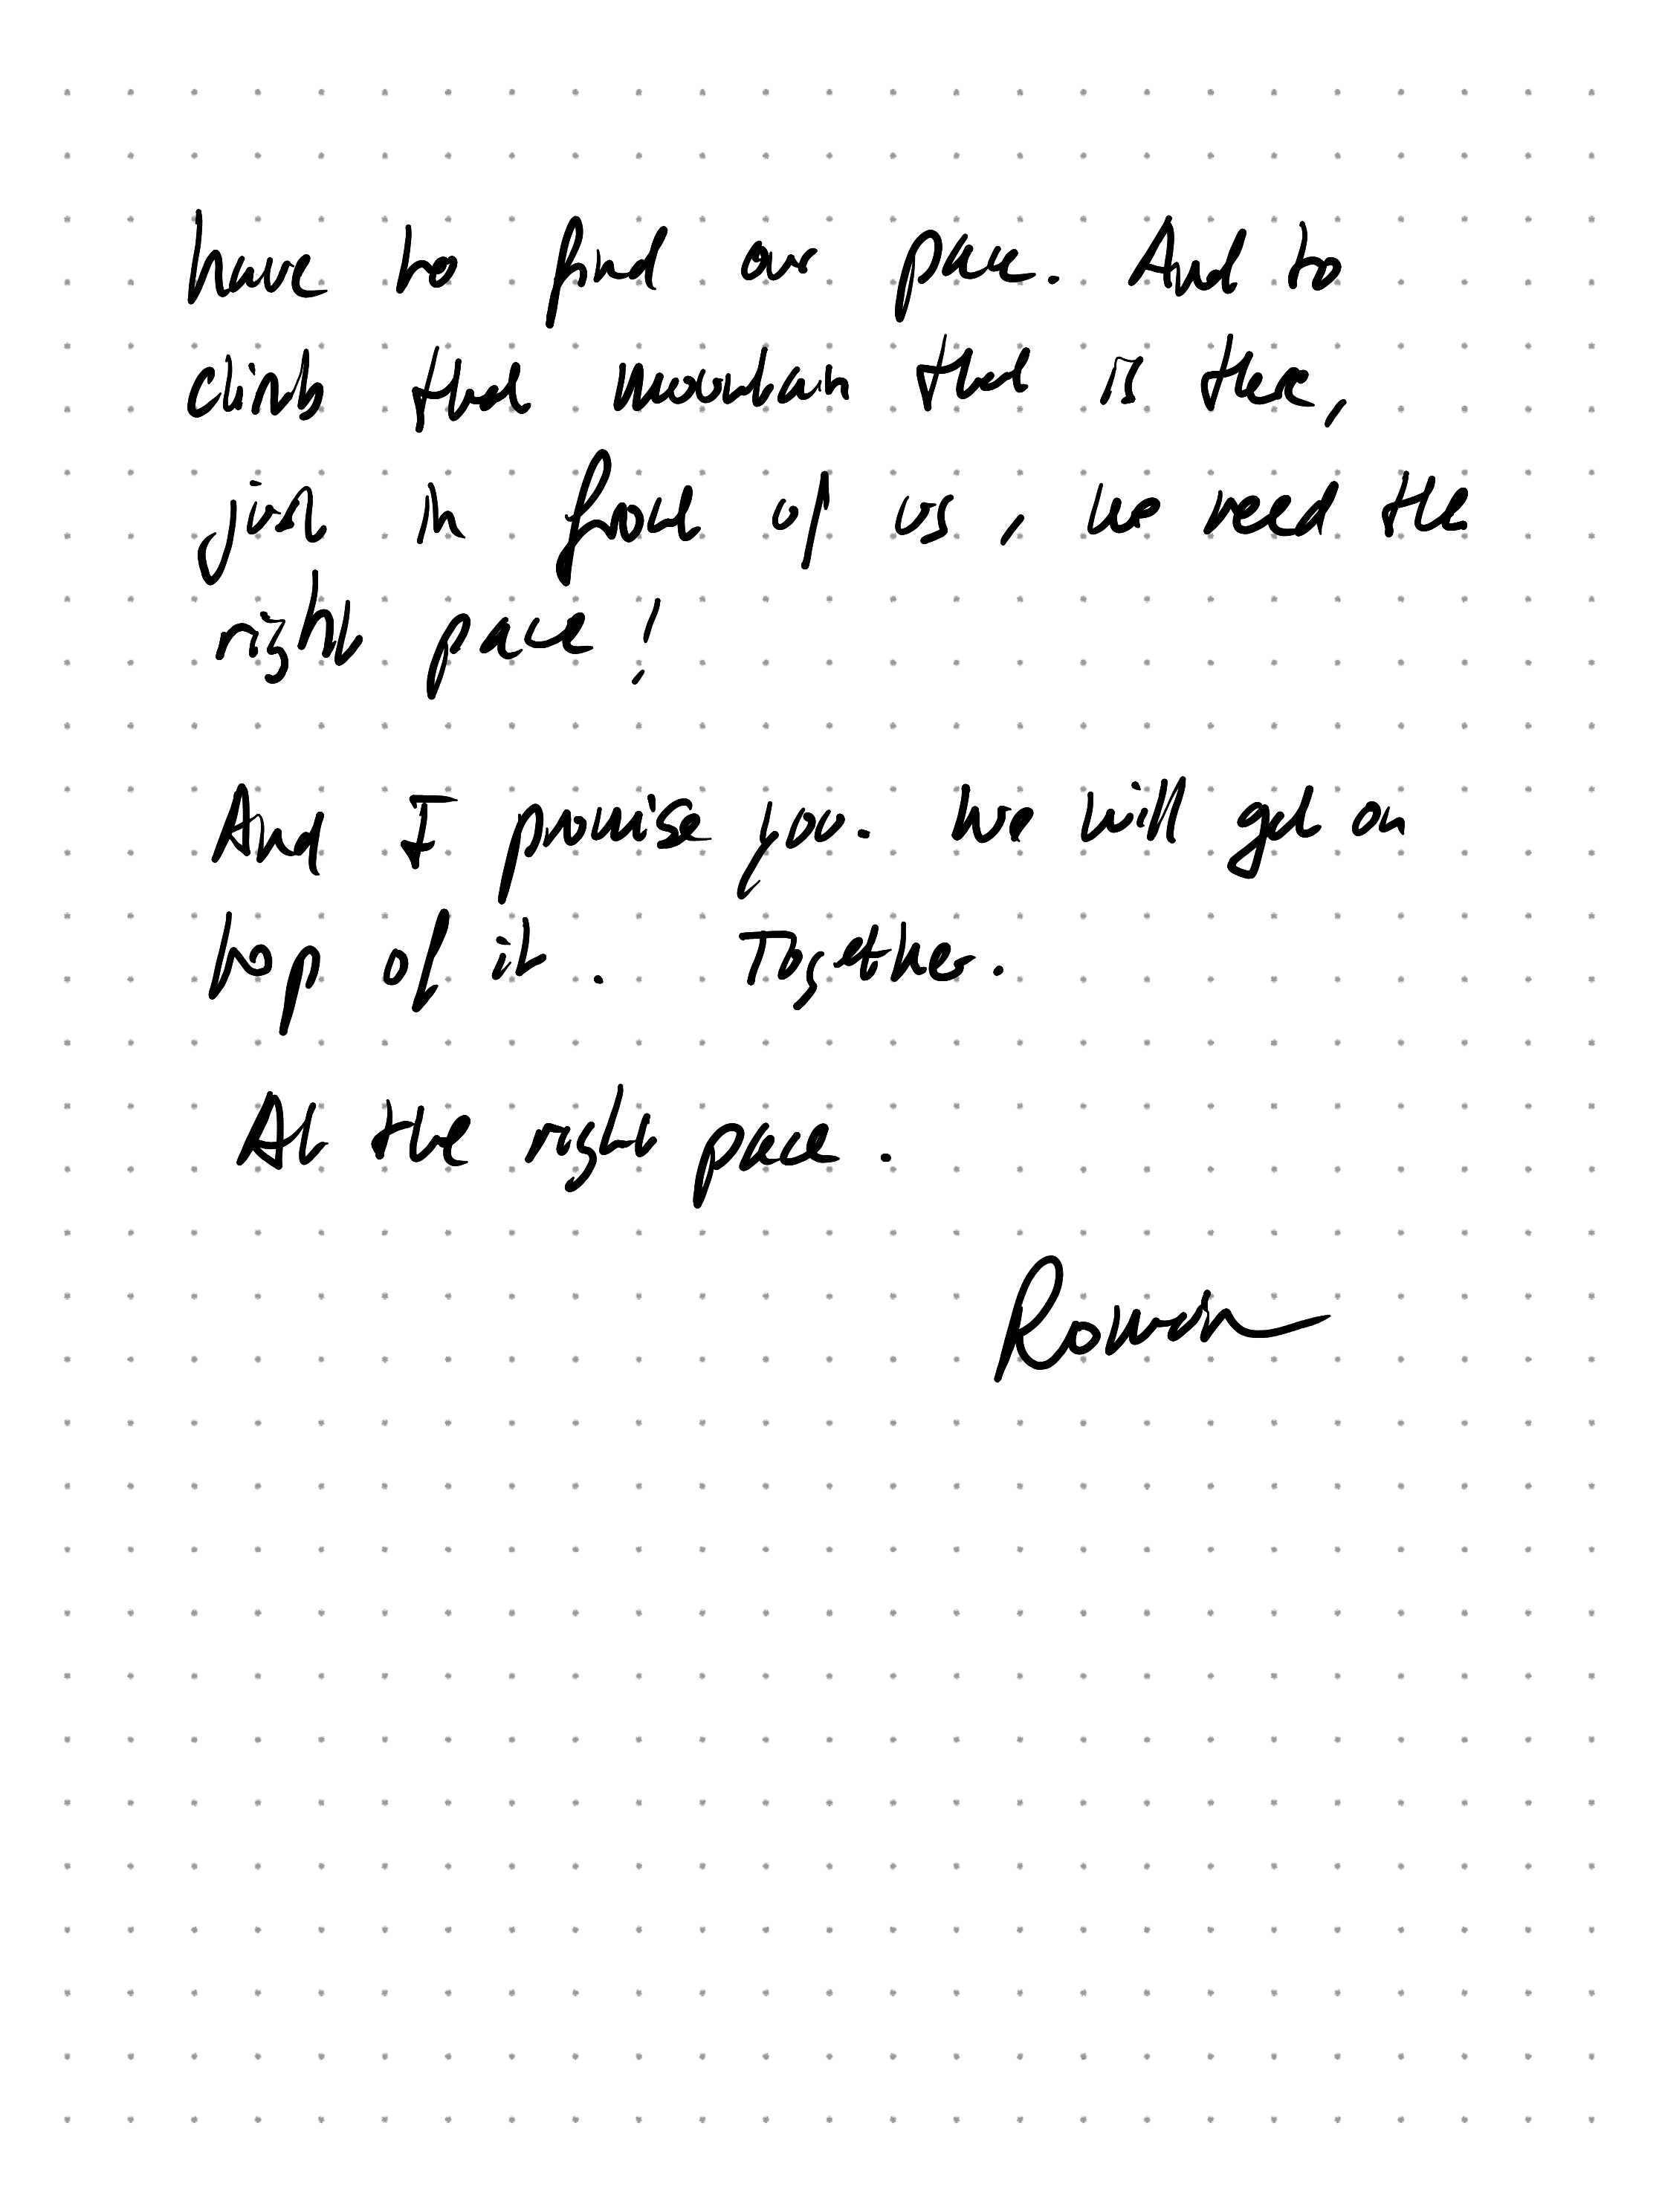 have to find our pace. And to
climb that mountain that is there,
just in front of us, we need the
right pace!
And I promise you. We will get on
top of it. Together.
At the right pace.
Rowan